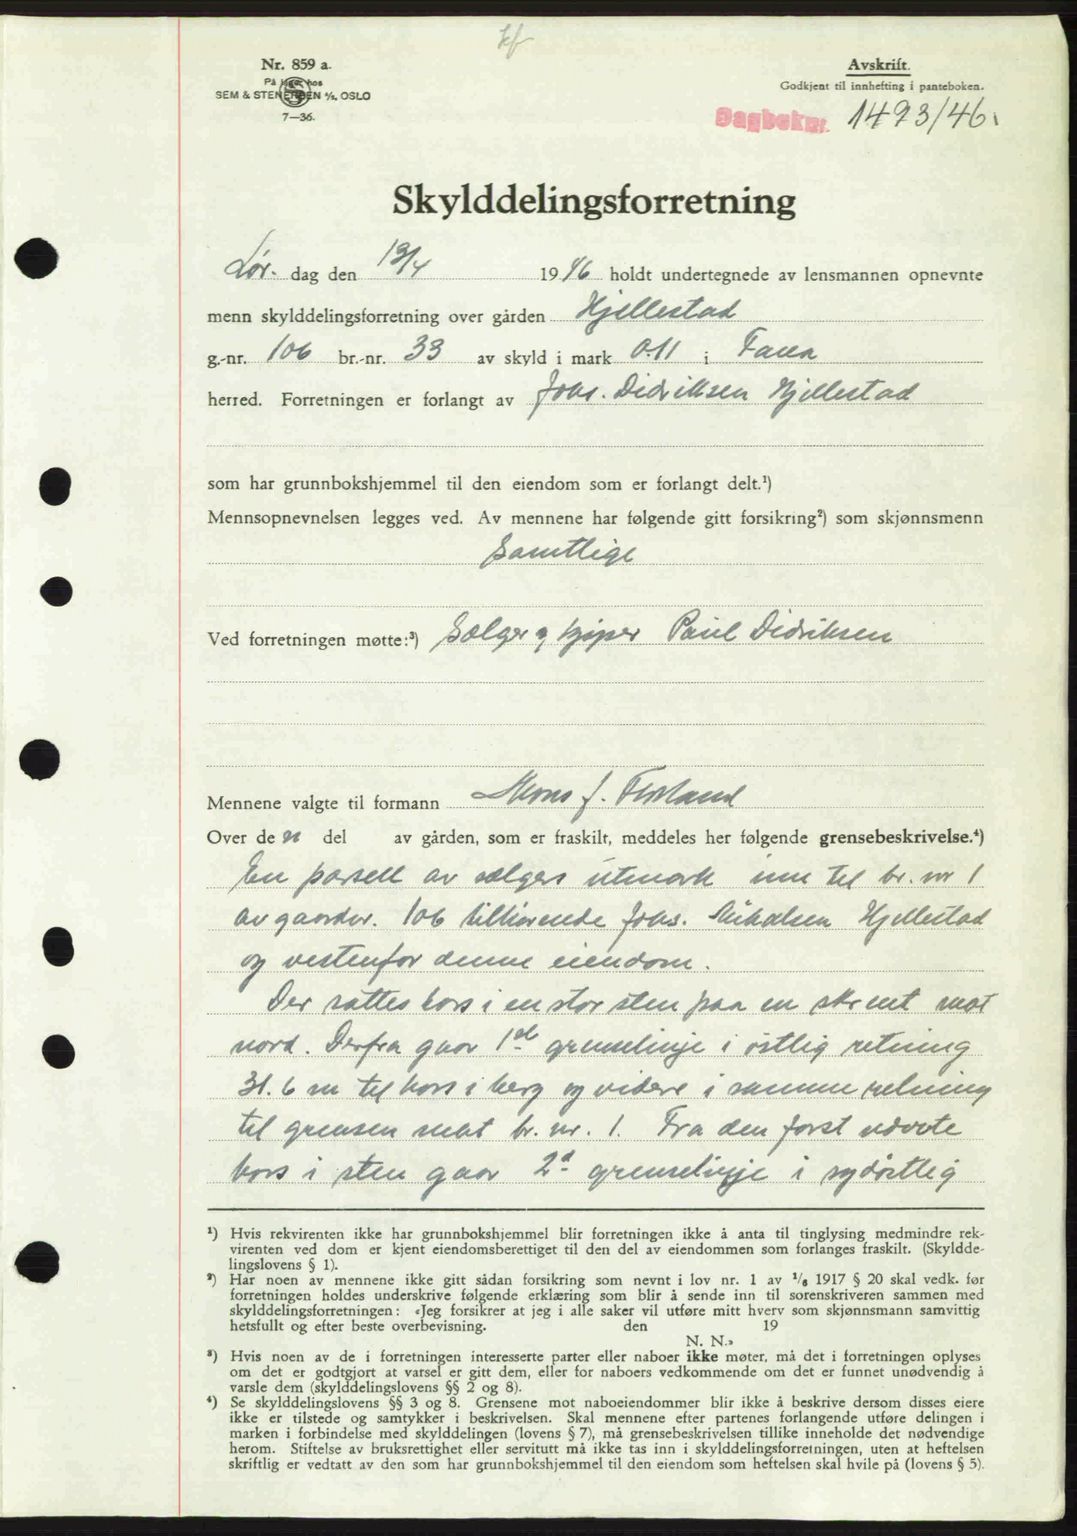 Nr. 859 a.
På lager hos
SEM & STENERSEN A/S. OSLO
7—36.
Avskrift.
Godkjent til innhefting i panteboken.
Dagboknr. 1493/46.
Skylddelingsforretning
Lør. dag den 13/4 1946 holdt undertegnede av lensmannen opnevnte
menn skylddelingsforretning over gården Hjellestad
g.-nr. 106 br.-nr. 33 av skyld i mark 0.11 i Fana
herred. Forretningen er forlangt av Johs. Didriksen Hjellestad
som har grunnbokshjemmel til den eiendom som er forlangt delt.¹)
Mennsopnevnelsen legges ved. Av mennene har følgende gitt forsikring²) som skjønnsmenn
Samtlige
Ved forretningen møtte:³) Selger og kjøper Paul Didriksen
Mennene valgte til formann Mons J.
Over den del av gården, som er fraskilt, meddeles her følgende grensebeskrivelse.⁴)
En parsell av selgers utmark inn til br. nr 1
av gaardnr. 106 tilhørende Johs. Mikalsen Hjellestad
og vestenfor denne eiendom.
Der sattes kors i en stor sten paa en skrent mot
nord. Derfra gaar 1ste grenselinje i østlig retning
31.6 m til kors i berg og videre i samme retning
til grensen mot br. nr. 1. Fra den først nævnte
kors i sten gaar 2d grenselinje i sydøstlig
¹) Hvis rekvirenten ikke har grunnbokshjemmel blir forretningen ikke å anta til tinglysing medmindre rek-
virenten ved dom er kjent eiendomsberettiget til den del av eiendommen som forlanges fraskilt. (Skyldde-
lingslovens § 1).
²) Har noen av mennene ikke gitt sådan forsikring som nevnt i lov nr. 1 av 1/6 1917 § 20 skal vedk. før
forretningen holdes underskrive følgende erklæring som blir å sende inn til sorenskriveren sammen med
skylddelingsforretningen: «Jeg forsikrer at jeg i alle saker vil utføre mitt hverv som skjønnsmann samvittig
hetsfullt og efter beste overbevisning. den 19
N. N.»
³) Hvis noen av de i forretningen interesserte parter eller naboer ikke møter, må det i forretningen oplyses
om det er godtgjort at varsel er gitt dem, eller for naboers vedkommende om det er funnet unødvendig å
varsle dem (skylddelingslovens §§ 2 og 8).
⁴) Se skylddelingslovens §§ 3 og 8. Grensene mot naboeiendommer blir ikke å beskrive dersom disses eiere
ikke er tilstede og samtykker i beskrivelsen. Skal mennene efter partenes forlangende utføre delingen i
marken i forbindelse med skylddelingen (lovens § 7), må grensebeskrivelsen tillike inneholde det nødvendige
herom. Stiftelse av bruksrettighet eller servitutt må ikke tas inn i skylddelingsforretningen, uten at heftelsen
skriftlig er vedtatt av den som har grunnbokshjemmel til den eiendom som heftelsen skal hvile på (lovens § 5).